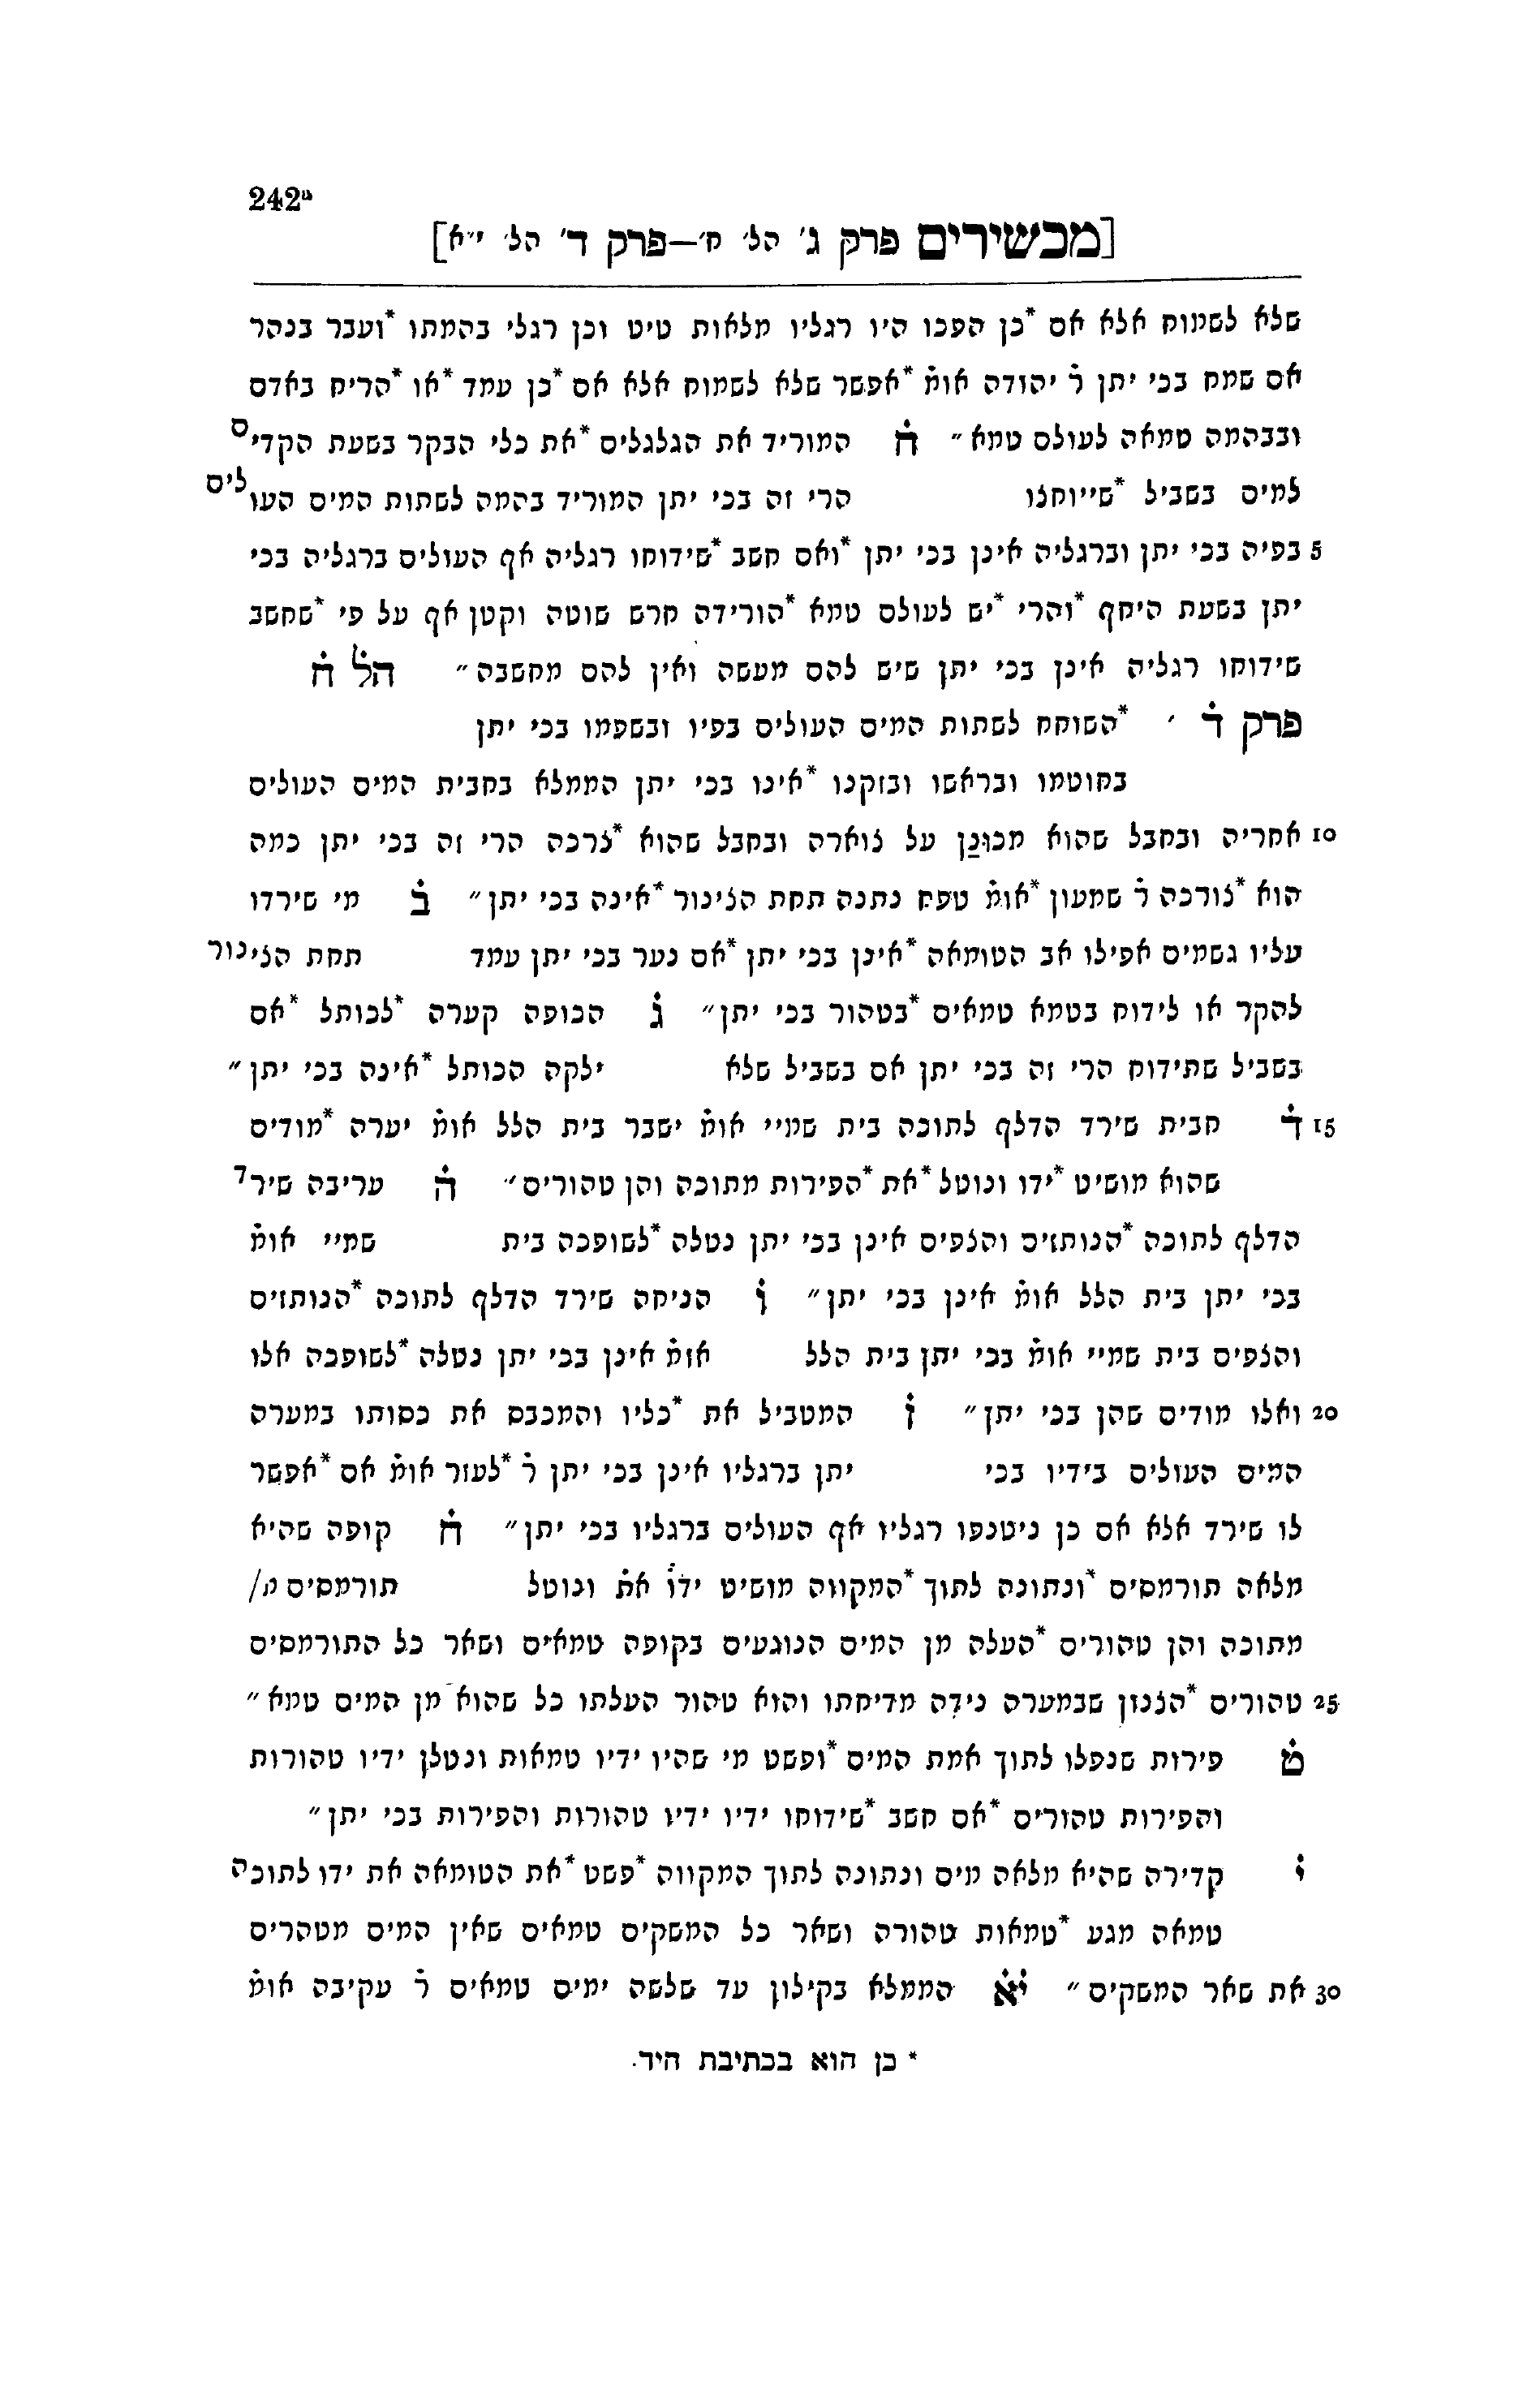 242ᵃ
[מכשירים פרק ג' הל' ח'—פרק ד' הל' י״א]
שלא לשמוח אלא אם *כן הפכו היו רגליו מלאות טיט וכן רגלי בהמתו *ועבר בנהר
אם שמח בכי יתן ר̇ יהודה אומ̇ *אפשר שלא לשמוח אלא אם *כן עמד *או *הריח באדם
ובבהמה טמאה לעולם טמא ״ ח̇ המוריד את הגלגלים *את כלי הבקר בשעת הקדים
למים בשביל *שייוחלו הרי זה בכי יתן המוריד בהמה לשתות המים העולים
5 בפיה בכי יתן וברגליה אינן בכי יתן *ואם חשב *שידוחו רגליה אף העולים ברגליה בכי
יתן בשעת היחף *והרי *יש לעולם טמא *הורידה חרש שוטה וקטן אף על פי *שחשב
שידוחו רגליה אינן בכי יתן שיש להם מעשה ואין להם מחשבה ״ הל̇ ח̇
פרק ד̇ ׳ *השוחח לשתות המים העולים בפיו ובשפמו בכי יתן
בחוטמו ובראשו ובזקנו *אינו בכי יתן הממלא בחבית המים העולים
10 אחריה ובחבל שהוא מכוגן על צוארה ובחבל שהוא *צרכה הרי זה בכי יתן כמה
הוא *צורכה ר̇ שמעון *אומ̇ טפח נתנה תחת הצינור *אינה בכי יתן ״ ב̇ מי שירדו
עליו גשמים אפילו אב הטומאה *אינן בכי יתן *אם נער בכי יתן עמד תחת הצינור
להקר או לידוח בטמא טמאים *בטהור בכי יתן ״ ג̇ הכופה קערה *לכותל *אם
בשביל שתידוח הרי זה בכי יתן אם בשביל שלא ילקה הכותל *אינה בכי יתן ״
15 ד̇ חבית שירד הדלף לתוכה בית שמיי אומ̇ ישבר בית הלל אומ̇ יערה *מודים
שהוא מושיט *ידו ונוטל *את *הפירות מתוכה והן טהורים ״ ה̇ עריבה שירד
הדלף לתוכה *הנותזים והצפים אינן בכי יתן נטלה *לשופכה בית שמיי אומ̇
בכי יתן בית הלל אומ̇ אינן בכי יתן ״ ו̇ הניחה שירד הדלף לתוכה *הנותזים
והצפים בית שמיי אומ̇ בכי יתן בית הלל אומ̇ אינן בכי יתן נטלה *לשופכה אלו
20 ואלו מודים שהן בכי יתן ״ ז̇ המטביל את *כליו והמכבס את כסותו במערה
המים העולים בידיו בכי יתן ברגליו אינן בכי יתן ר̇ *לעזר אומ̇ אם *אפשר
לו שירד אלא אם כן ניטנפו רגליו אף העולים ברגליו בכי יתן ״ ח̇ קופה שהיא
מלאה תורמסים *ונתונה לתוך *המקווה מושיט ידו̇ את̇ ונוטל תורמסים מ/
מתוכה והן טהורים *העלה מן המים הנוגעים בקופה טמאים ושאר כל התורמסים
25 טהורים *הצנון שבמערה נידה מדיחתו והוא טהור העלתו כל שהוא מן המים טמא ״
ט̇ פירות שנפלו לתוך אמת המים *ופשט מי שהיו ידיו טמאות ונטלן ידיו טהורות
והפירות טהורים *אם חשב *שידוחו ידיו ידיו טהורות והפירות בכי יתן ״
י̇ קדירה שהיא מלאה מים ונתונה לתוך המקווה *פשט *את הטומאה את ידו לתוכה
טמאה מגע *טמאות טהורה ושאר כל המשקים טמאים שאין המים מטהרים
30 את שאר המשקים ״ י̇א̇ הממלא בקילון עד שלשה ימים טמאים ר̇ עקיבה אומ̇
* כן הוא בכתיבת היד.